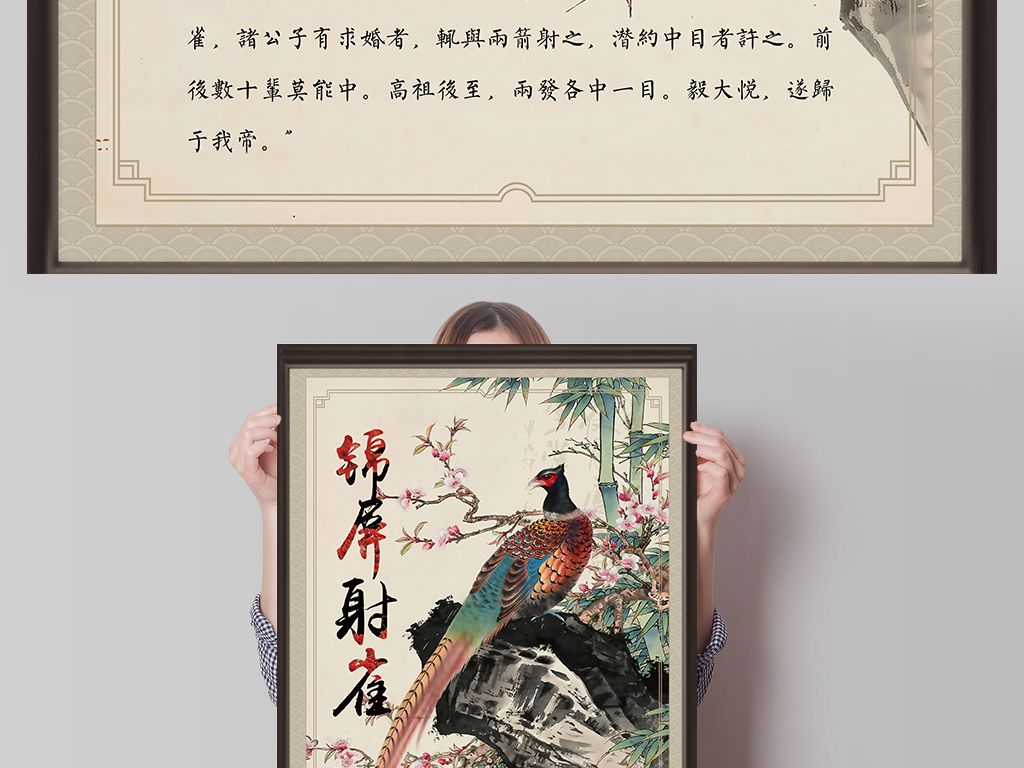 雀，諸公子有求婚者，輒與兩箭射之，潜約中目者許之。前
後數十輩莫能中。高祖後至，兩發各中一目。毅大悦，遂歸
于我帝。”
锦屏射雀